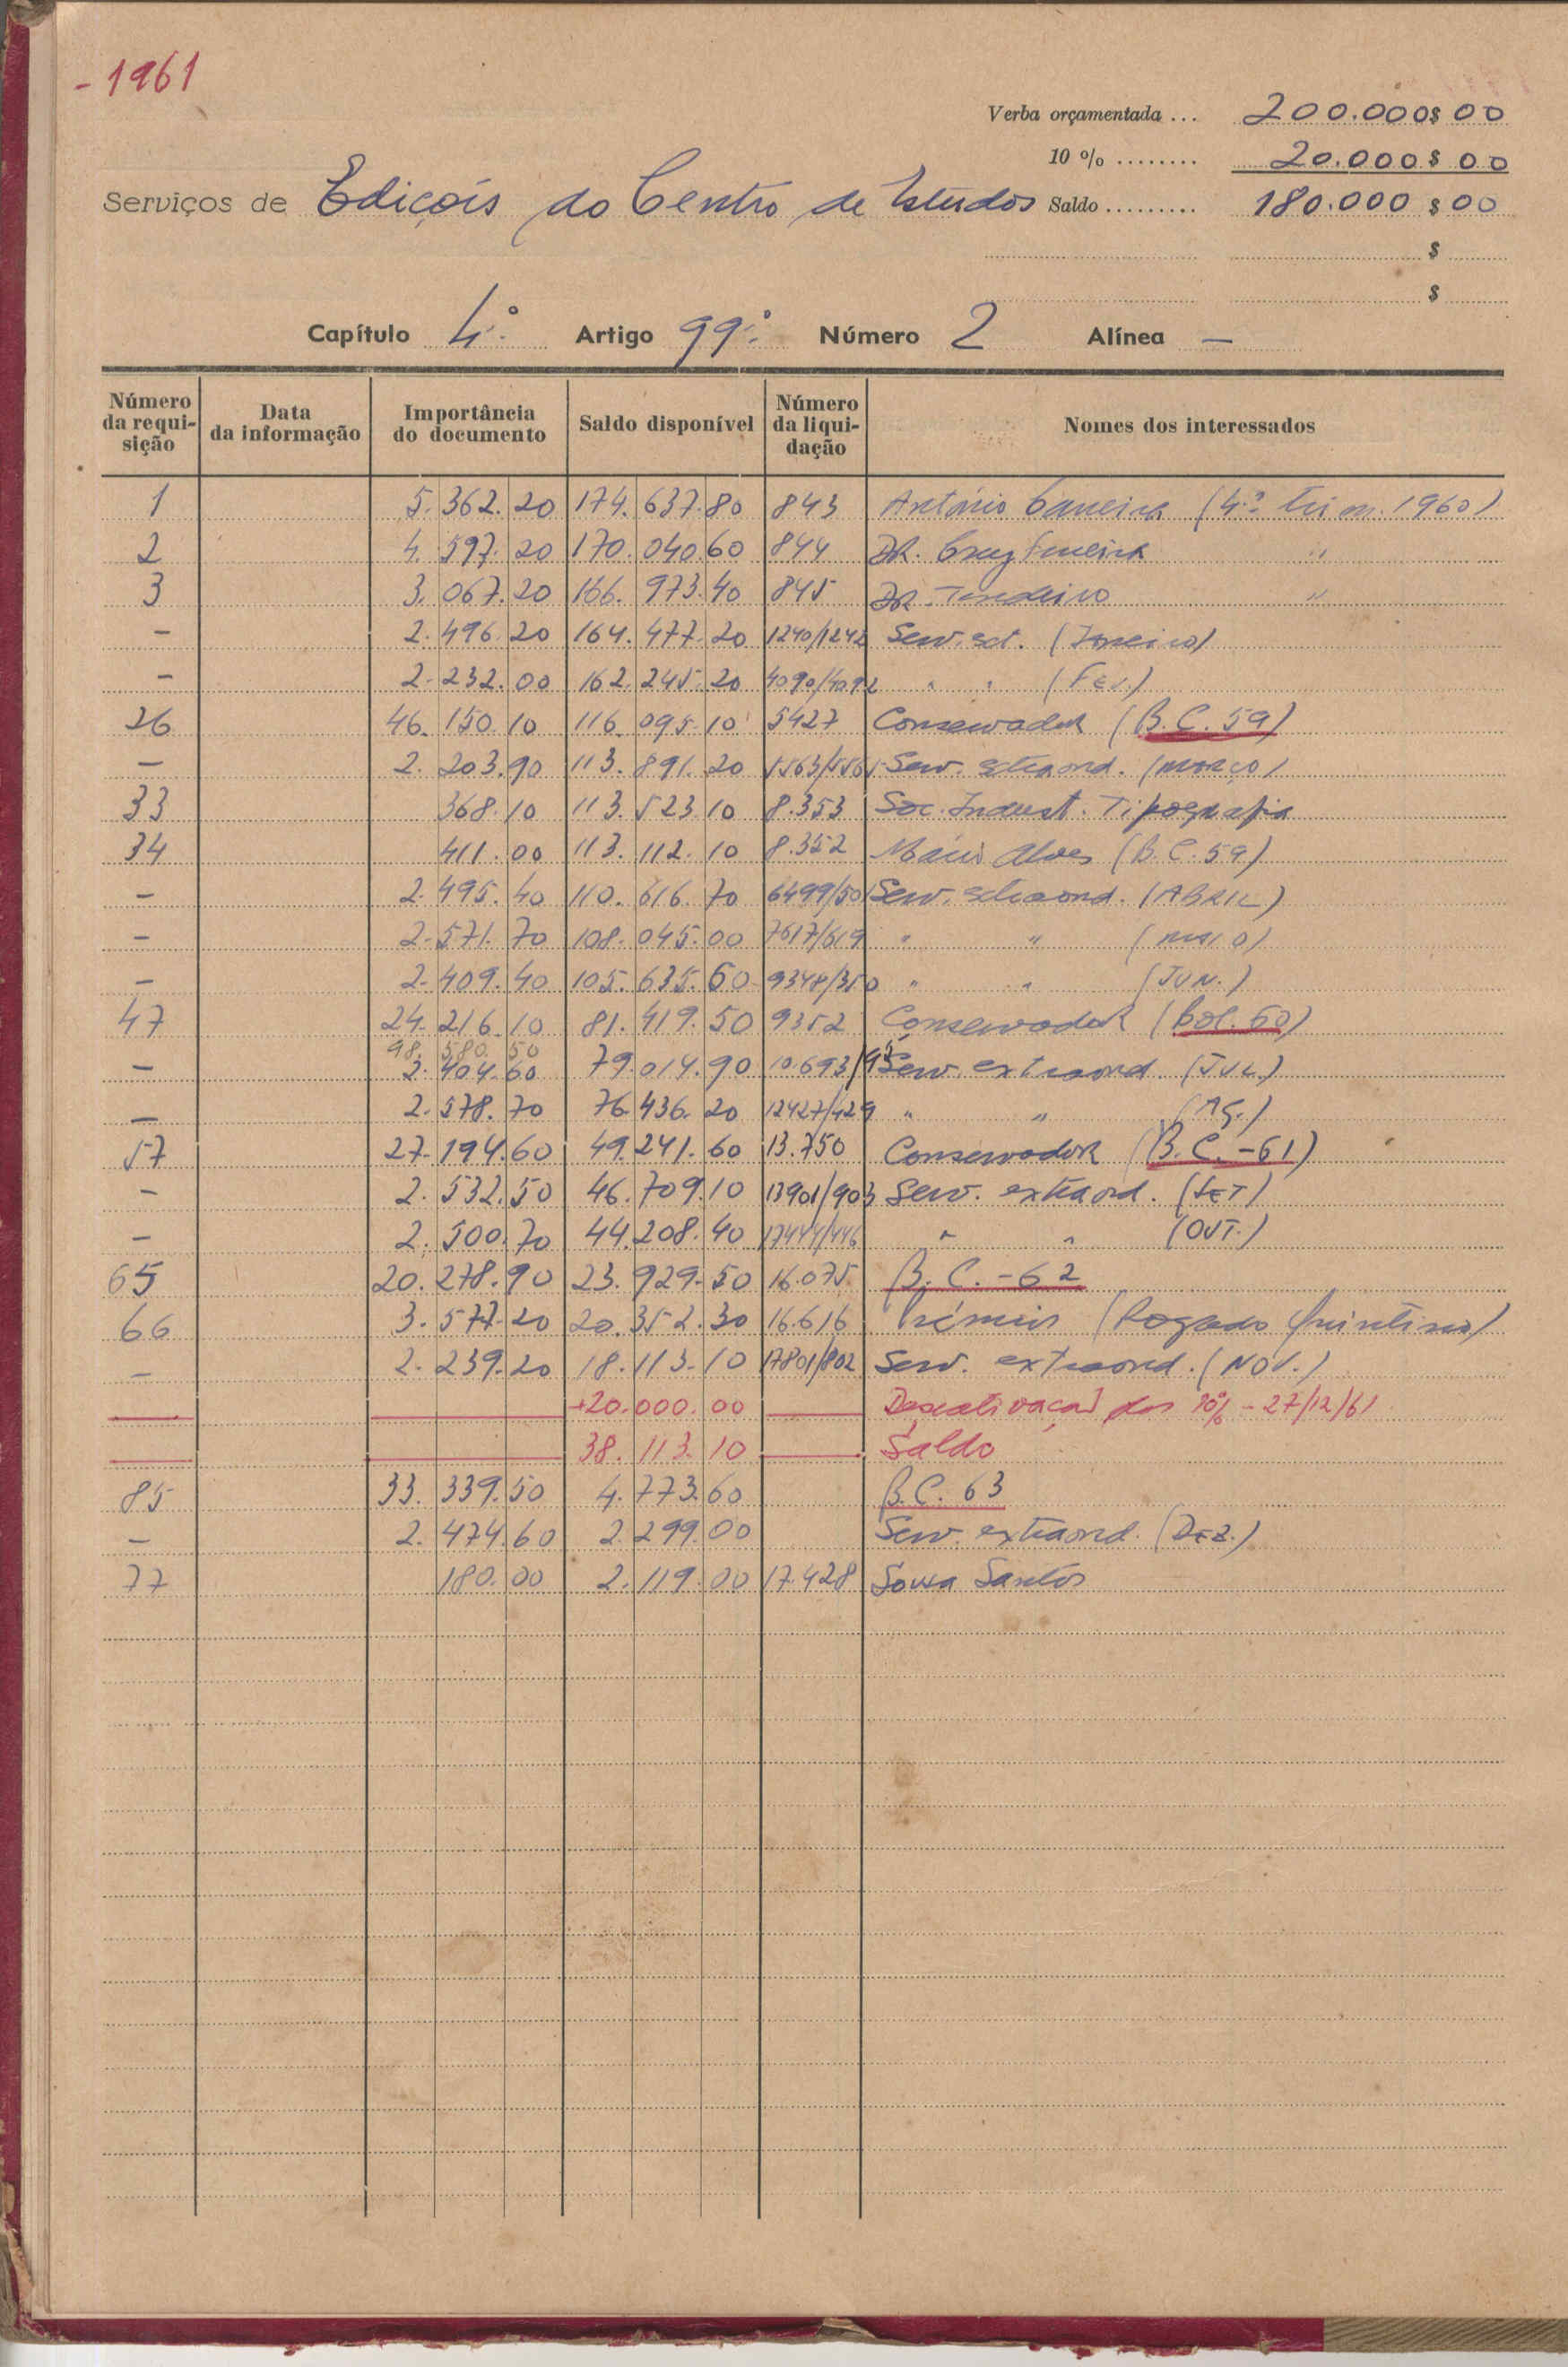 - 1961
Verba orçamentada ... 200.000$00
10 % ........ 20.000$00
Serviços de Edições do Centro de Estudos Saldo ......... 180.000$00
$
$
Capítulo 4.º Artigo 99.º Número 2 Alínea —
Número da requisição Data da informação Importância do documento Saldo disponível Número da liquidação Nomes dos interessados
1 5.362.20 174.637.80 843 António Carreira (4.º trim. 1960)
2 4.597.20 170.040.60 844 DR. "
3 3.067.20 166.973.40 845 DR. Tendeiro "
— 2.496.20 164.477.20 1240/1242 Serv. ext. (Janeiro)
— 2.232.00 162.245.20 4090/4092 " " (Fev.)
26 46.150.10 116.095.10 5427 Conservador (B.C. 59)
— 2.203.90 113.891.20 Serv. extraord. (MARÇO)
33 368.10 113.523.10 8.353 Soc. Indust. Tipografia
34 411.00 113.112.10 8.352 Mário Alves (B.C. 59)
— 2.495.40 110.616.70 6499/501 Serv. extraord. (ABRIL)
— 2.571.70 108.045.00 7617/619 " " (MAIO)
— 2.409.40 105.635.60 9348/350 " " (JUN.)
47 24.216.10 81.419.50 9352 Conservador (Bol. 60)
98.580.50
— 2.404.60 79.014.90 10.693/95 Serv. extraord. (JUL.)
— 2.578.70 76.436.20 12427/429 " " (AG.)
57 27.194.60 49.241.60 13.750 Conservador (B.C.-61)
— 2.532.50 46.709.10 13901/903 Serv. extraord. (SET)
— 2.500.70 44.208.40 17444/446 " " (OUT.)
65 20.278.90 23.929.50 16.075 B.C.-62
66 3.577.20 20.352.30 16.616 Prémios (Rogado Quintino)
— 2.239.20 18.113.10 17801/802 Serv. extraord. (NOV.)
— — +20.000.00 — Descativação dos 10% - 27/12/61
— — 38.113.10 — Saldo
85 33.339.50 4.773.60 B.C. 63
— 2.474.60 2.299.00 Serv. extraord. (DEZ.)
77 180.00 2.119.00 17.428 Sousa Santos